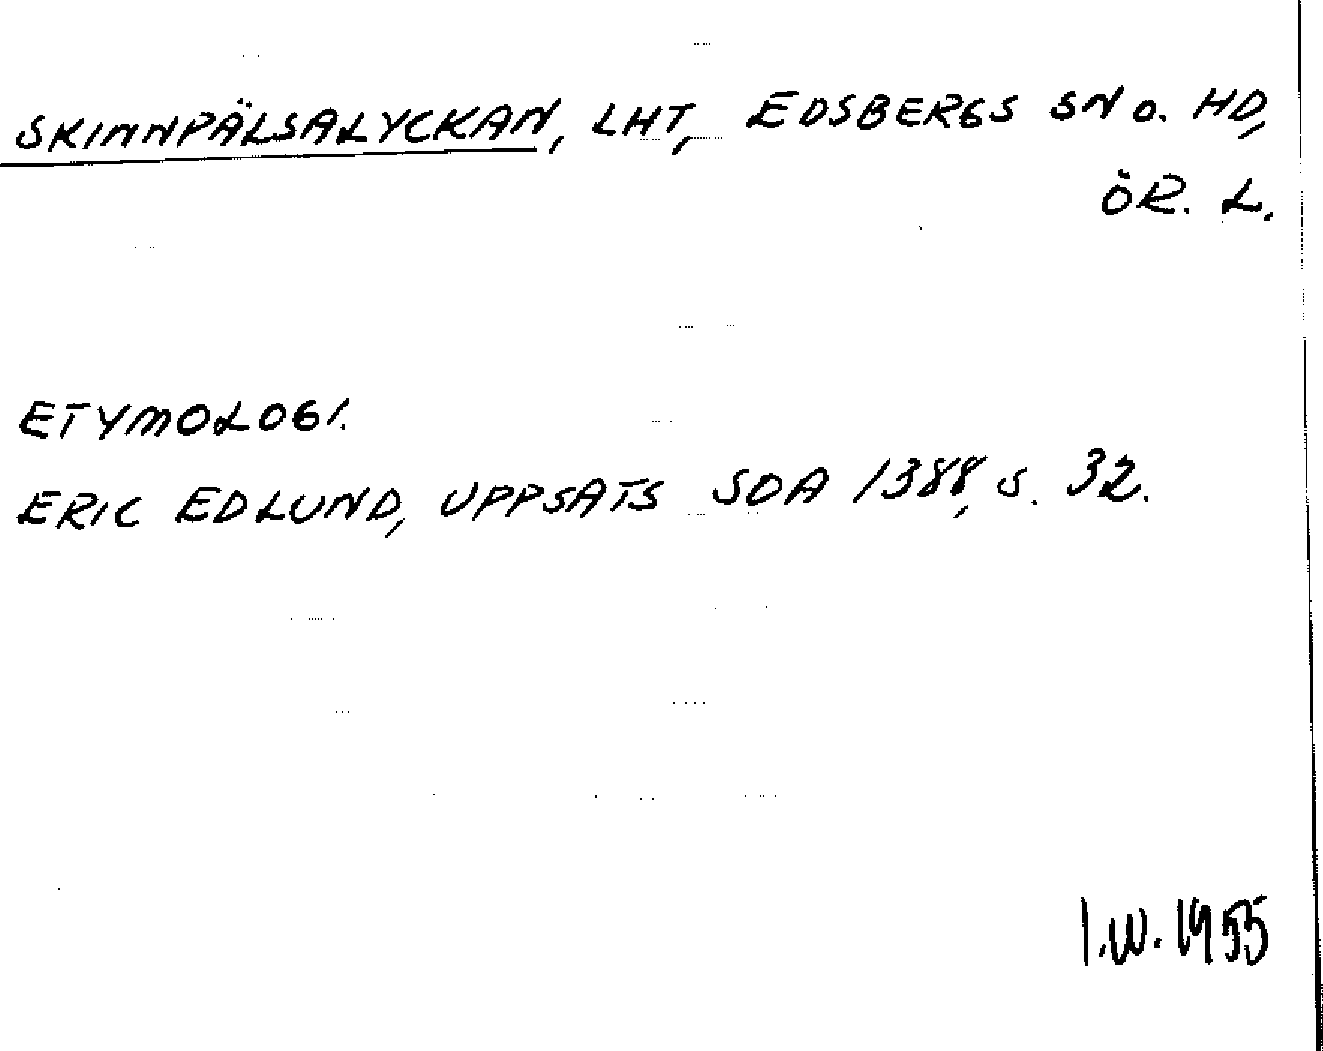 SKINNPÄLSALYCKAN, LHT, EDSBERGS SN O. HD,
ÖR. L.
ETYMOLOGI.
ERIC EDLUND, UPPSATS SOA 1388, S. 32.
I.W. 1955